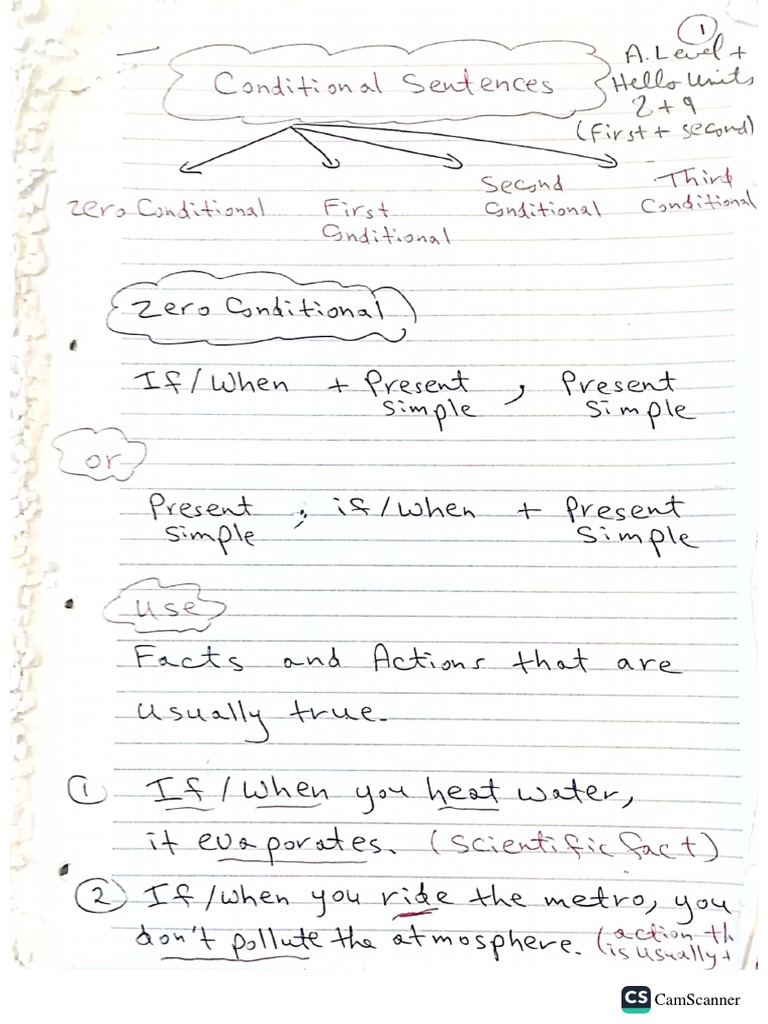 1
A. Level +
Conditional Sentences
Hello Units
2 + 9
(First + second)
zero Conditional
First
Conditional
Second
Conditional
Third
Conditional
Zero Conditional
If / When + Present Simple , Present Simple
or
Present Simple , if / when + Present Simple
use
Facts and Actions that are
usually true.
1 If / When you heat water,
it evaporates. (Scientific fact)
2 If / when you ride the metro, you
don't pollute the atmosphere. (action th
is usually t
CS CamScanner